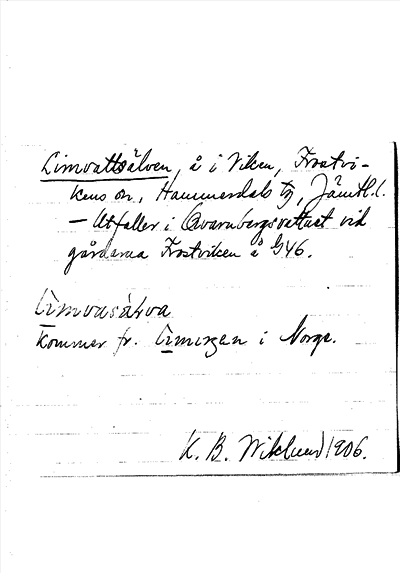 Limvattsälven, å i Viken, Frostvi-
kens sn, Hammerdals tg, Jämtl. l.
— Utfaller i Qvarnbergsvattnet vid
gårdarna Frostviken å G46.
Limvasálva
kommer fr. Limingen i Norge.
K. B. Wiklund 1906.